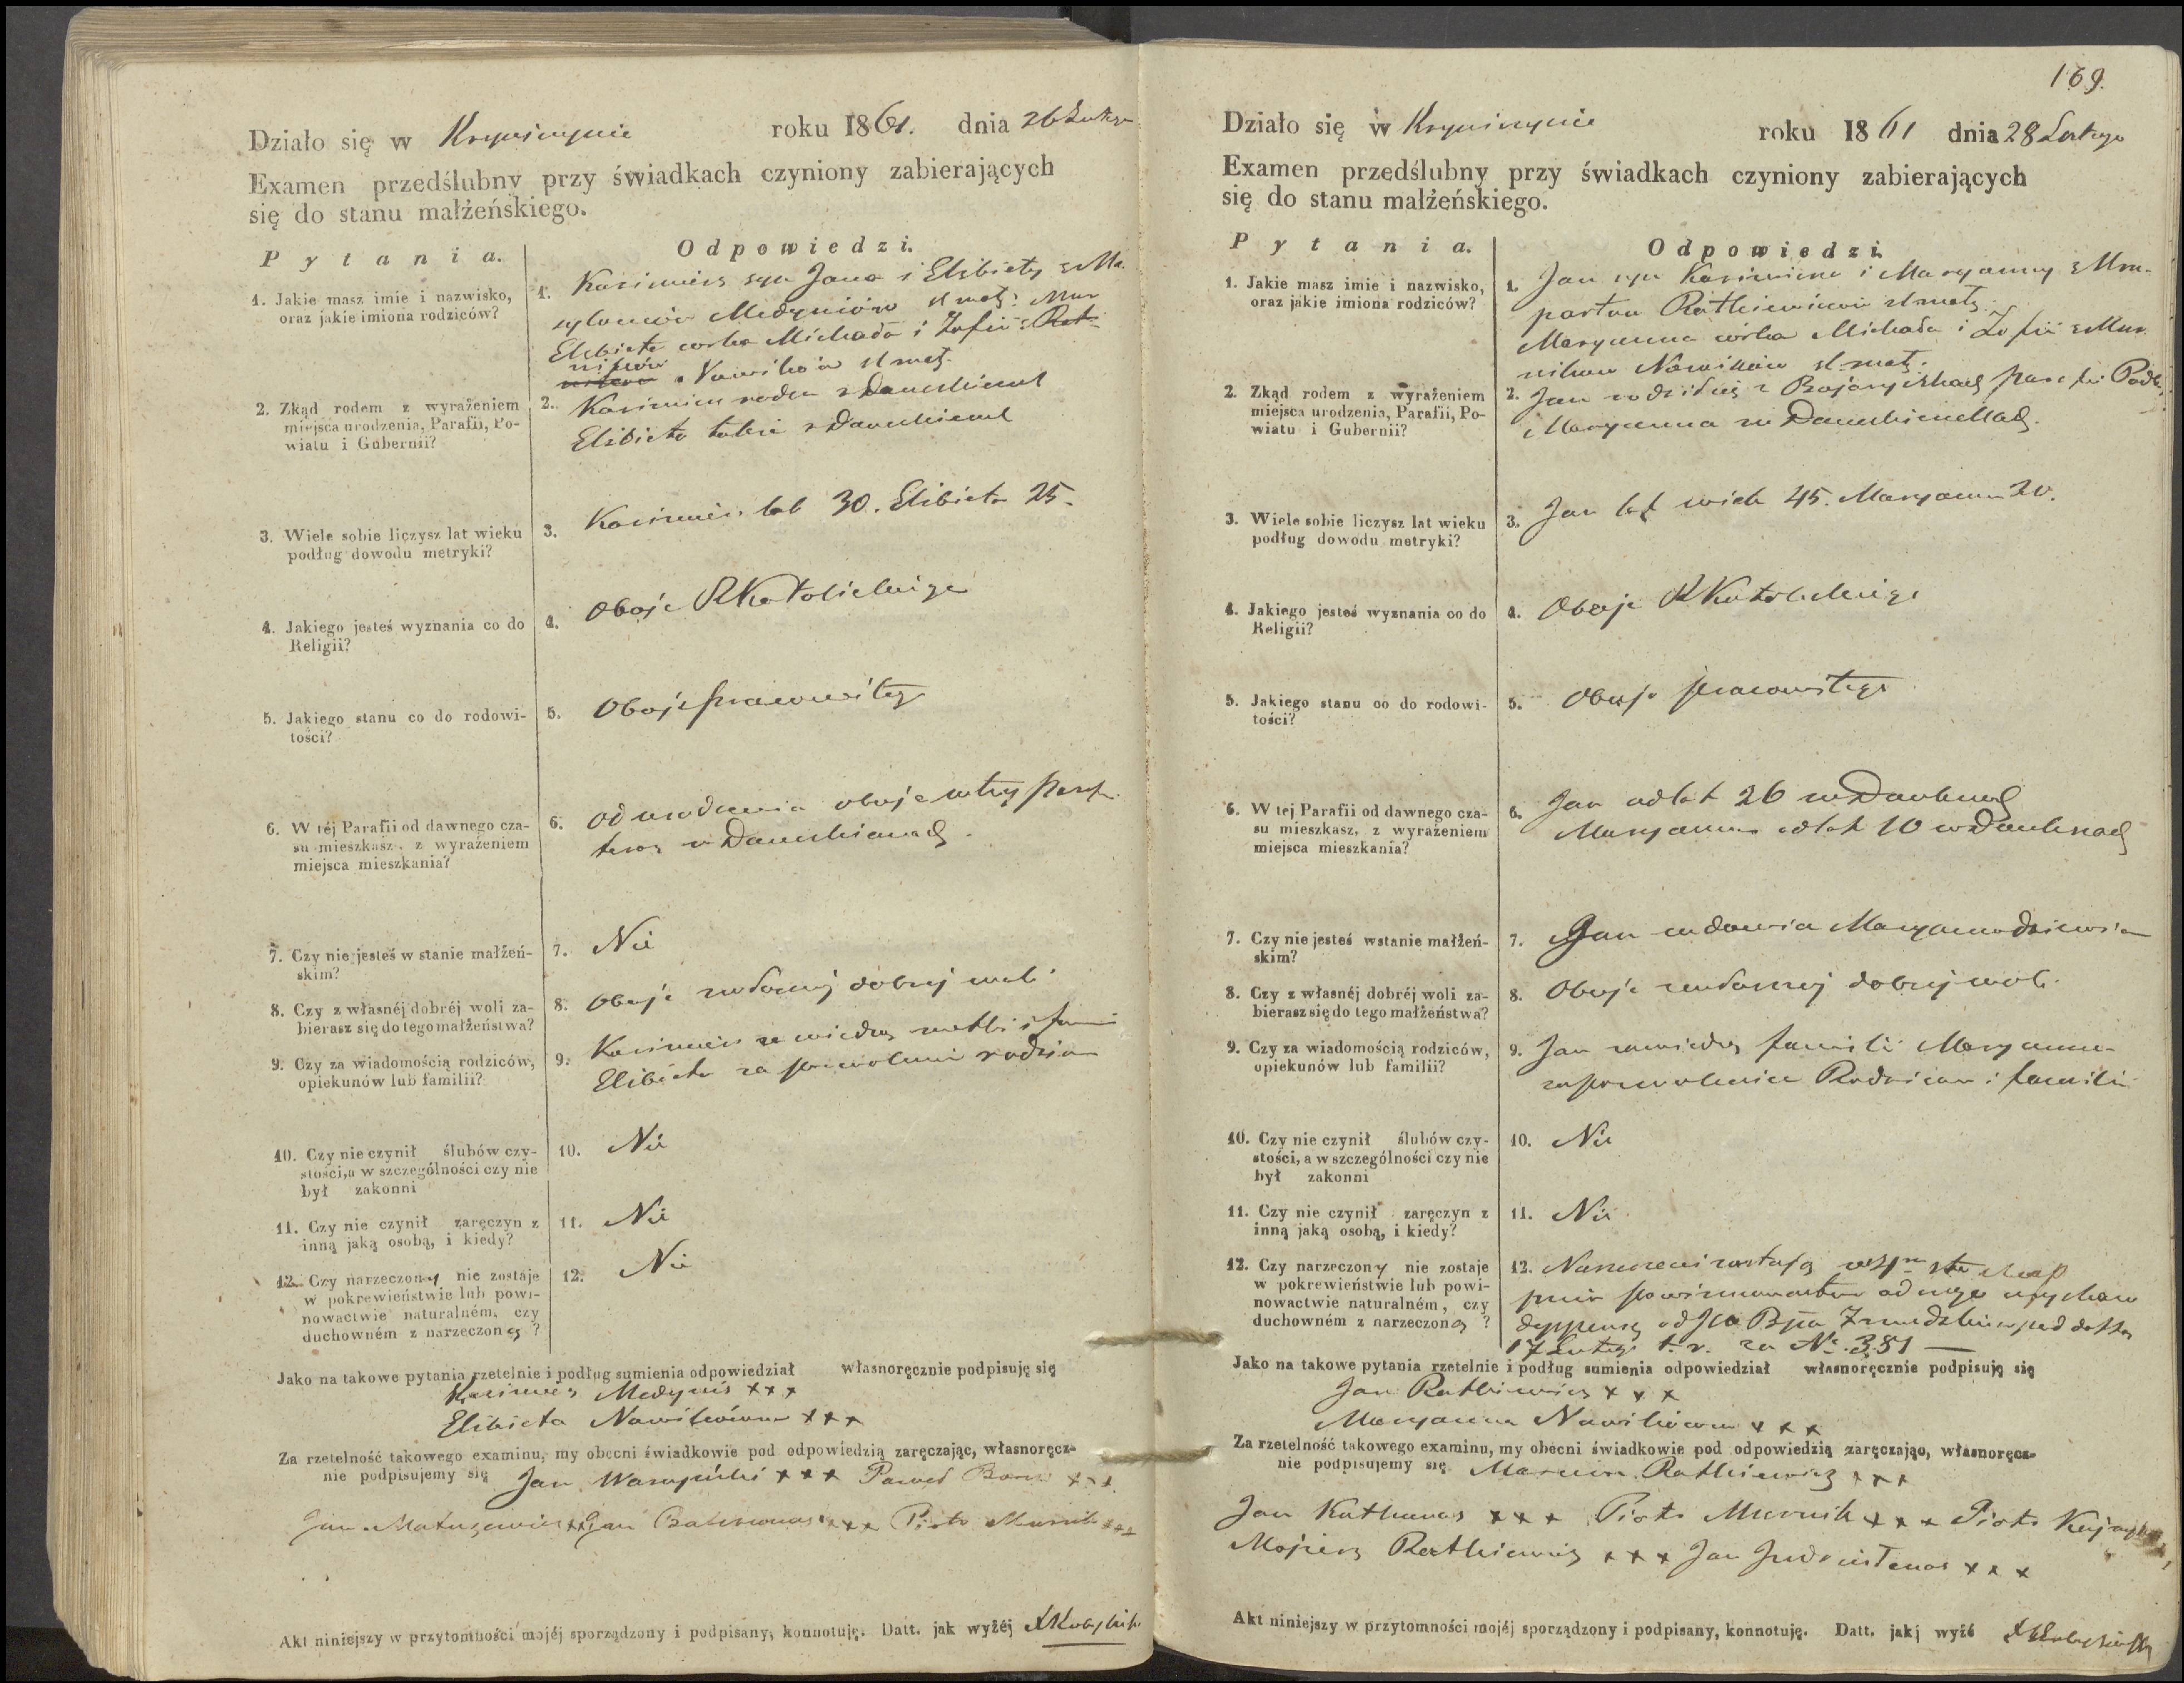 Działo się w roku 1861. dnia 26 Lutego
Examen przedślubny przy świadkach czyniony zabierających
się do stanu małżeńskiego.
Pytania.
Odpowiedzi.
1. Jakie masz imie i nazwisko,
oraz jakie imiona rodziców?
1. Kazimierz syn Jana i Elżbiety z
Medyniów
Elżbieta córka Michała i Zofii z
Nowików
2. Zkąd rodem z wyrażeniem
miejsca urodzenia, Parafii, Po-
wiatu i Gubernii?
2. Kazimierz rodem z
Elżbieta także z
3. Wiele sobie liczysz lat wieku
podług dowodu metryki?
3. Kazimierz lat 30. Elżbieta 25.
4. Jakiego jesteś wyznania co do
Religii?
4. Oboje RKatolickiego
5. Jakiego stanu co do rodowi-
tości?
5. Oboje prawowitego
6. W téj Parafii od dawnego cza-
su mieszkasz, z wyrażeniem
miejsca mieszkania?
6. od urodzenia oboje w tej Paraf.
teraz w
7. Czy nie jesteś w stanie małżeń-
skim?
7. Nie
8. Czy z własnéj dobréj woli za-
bierasz się do tego małżeństwa?
8. Oboje z własnej dobrej woli
9. Czy za wiadomością rodziców,
opiekunów lub familii?
9. Kazimierz za wiedzą matki i
Elżbieta za pozwoleniem rodziców
10. Czy nie czynił ślubów czy-
stości, a w szczególności czy nie
był zakonni
10. Nie
11. Czy nie czynił zaręczyn z
inną jaką osobą, i kiedy?
11. Nie
12. Czy narzeczony nie zostaje
w pokrewieństwie lub powi-
nowactwie naturalném, czy
duchowném z narzeczoną ?
12. Nie
Jako na takowe pytania rzetelnie i podług sumienia odpowiedział własnoręcznie podpisuję się
Kazimierz Medynis xxx
Elżbieta Nowikówna xxx
Za rzetelność takowego examinu, my obecni świadkowie pod odpowiedzią zaręczając, własnoręcz-
nie podpisujemy się Jan xxx Paweł xxx
Jan Matuzewicz xx Jan xxx Piotr Murnik xxx
Akt niniejszy w przytomności mojéj sporządzony i podpisany, konnotuję. Datt. jak wyżéj
169.
Działo się w roku 1861 dnia 28 Lutego
Examen przedślubny przy świadkach czyniony zabierających
się do stanu małżeńskiego.
Pytania.
Odpowiedzi.
1. Jakie masz imie i nazwisko,
oraz jakie imiona rodziców?
1. Jan syn Kazimierza i Maryanny z
Ratkiewiczów
Maryanna córka Michała i Zofii z Mur
ników Nowików
2. Zkąd rodem z wyrażeniem
miejsca urodzenia, Parafii, Po-
wiatu i Gubernii?
2. Jan rodził się w
Maryanna w
3. Wiele sobie liczysz lat wieku
podług dowodu metryki?
3. Jan lat wiek 45. Maryanna 20.
4. Jakiego jesteś wyznania co do
Religii?
4. Oboje RKatolickiego
5. Jakiego stanu co do rodowi-
tości?
5. Oboje prawowitego
6. W tej Parafii od dawnego cza-
su mieszkasz, z wyrażeniem
miejsca mieszkania?
6. Jan od lat 26 w
Maryanna od lat 10 w
7. Czy nie jesteś wstanie małżeń-
skim?
7. Jan wdowiec Maryanna
8. Czy z własnéj dobréj woli za-
bierasz się do tego małżeństwa?
8. Oboje z własnej dobrej woli
9. Czy za wiadomością rodziców,
opiekunów lub familii?
9. Jan za wiedzą familii Maryanna
za pozwoleniem Rodziców i familii
10. Czy nie czynił ślubów czy-
stości, a w szczególności czy nie
był zakonni
10. Nie
11. Czy nie czynił zaręczyn z
inną jaką osobą, i kiedy?
11. Nie
12. Czy narzeczony nie zostaje
w pokrewieństwie lub powi-
nowactwie naturalném, czy
duchowném z narzeczoną ?
12. Narzeczeni zostają
17 Lutego t. r. za No. 351 —
Jako na takowe pytania rzetelnie i podług sumienia odpowiedział własnoręcznie podpisują się
Jan Ratkiewicz xxx
Maryanna Nowikówna xxx
Za rzetelność takowego examinu, my obecni świadkowie pod odpowiedzią zaręczając, własnoręcz-
nie podpisujemy się Marcin Ratkiewicz xxx
Jan xxx Piotr Murnik xxx Piotr
Ratkiewicz xxx Jan xxx
Akt niniejszy w przytomności mojéj sporządzony i podpisany, konnotuję. Datt. jakj wyżé